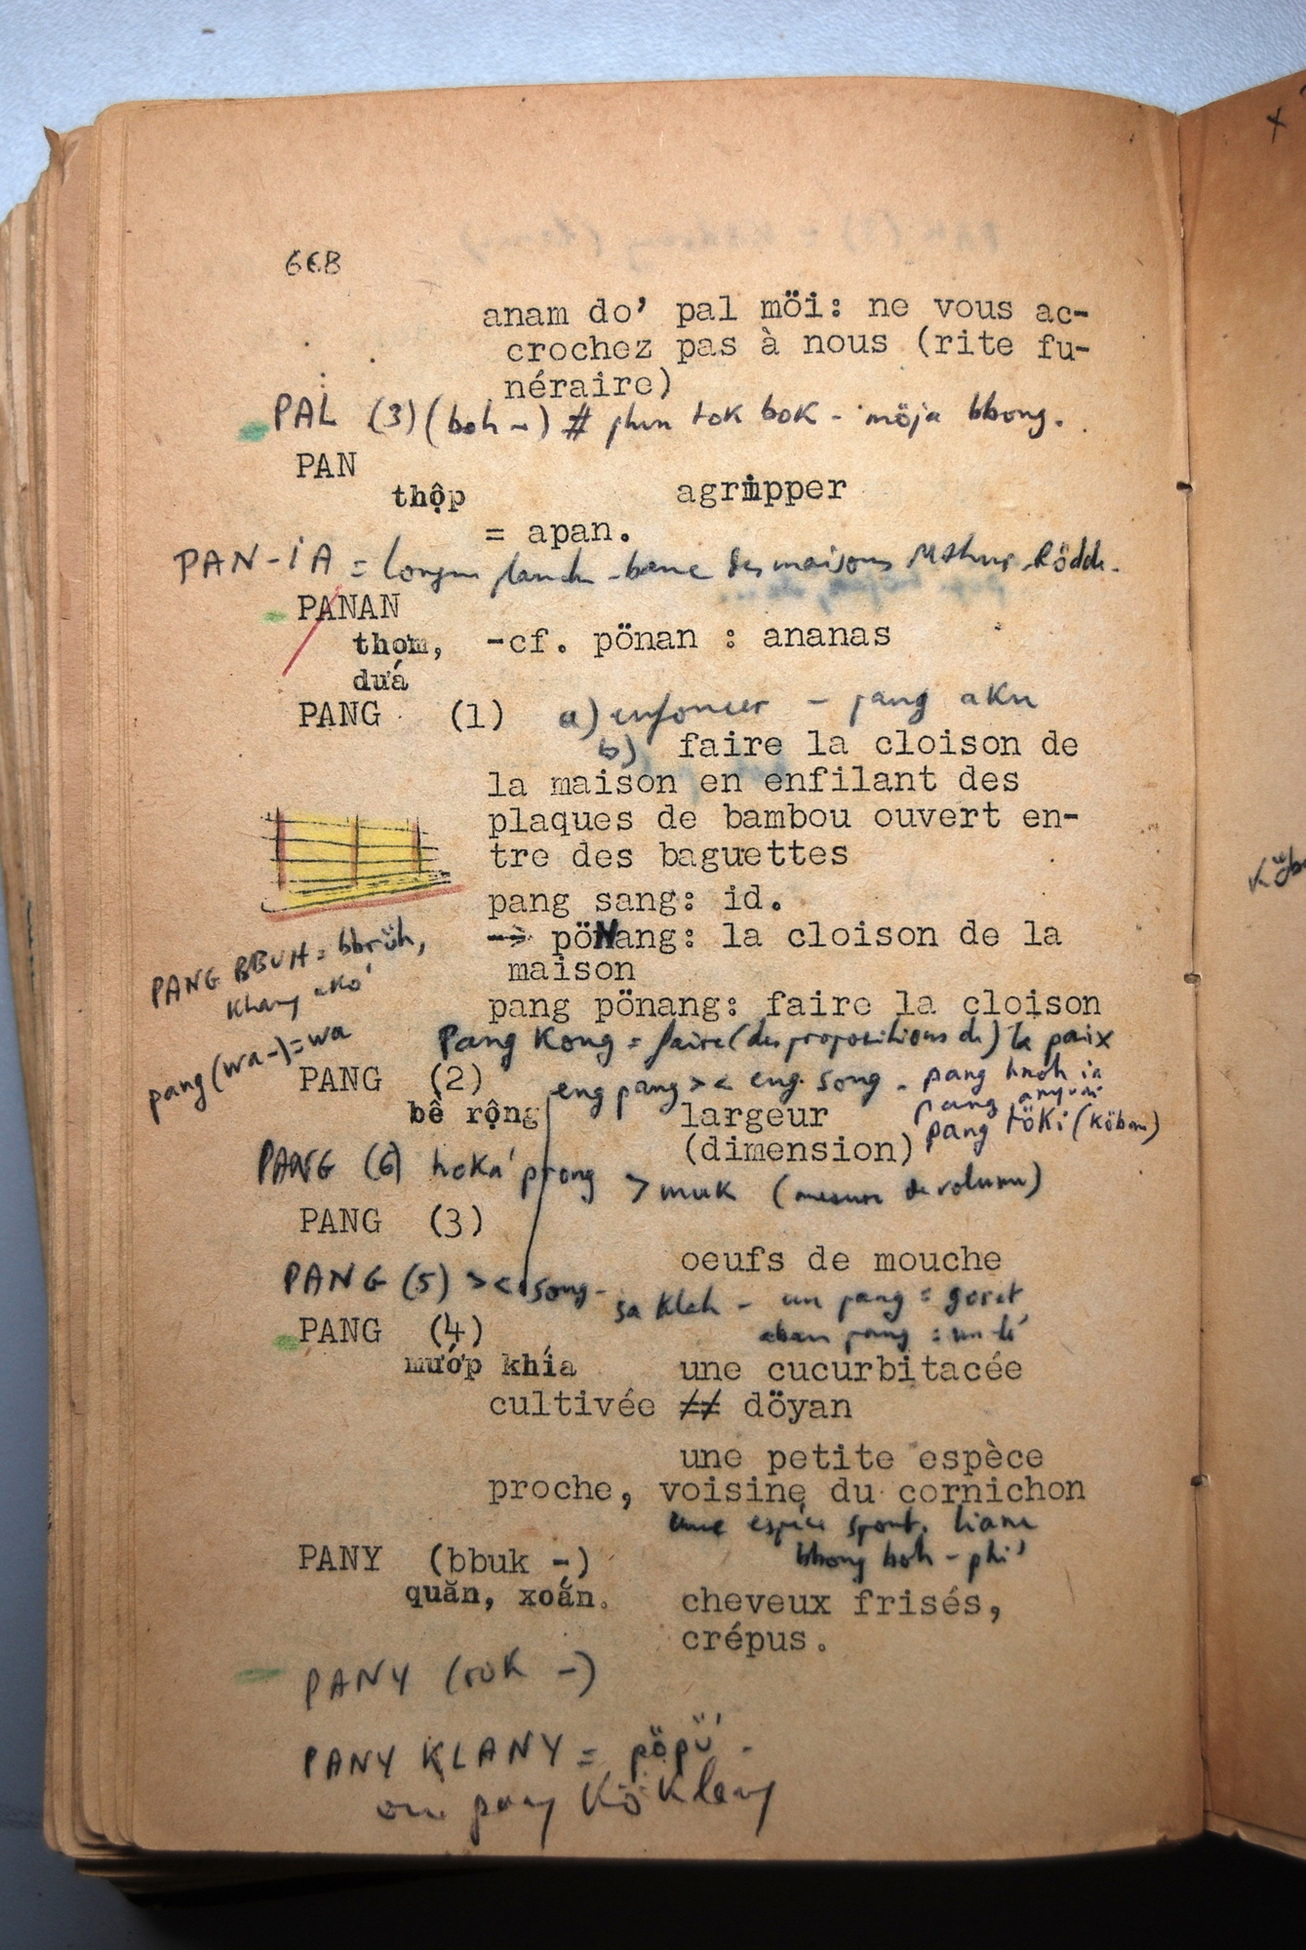 668
anam do' pal möi: ne vous ac-
crochez pas à nous (rite fu-
néraire)
PAL (3) (boh -) # phun tok bok - möja bbong.
PAN
thộp agripper
= apan.
PAN-IA = longue planche-banc des maisons Mthur, Röddé.
PANAN
thơm, -cf. pönan : ananas
dứa
PANG (1) a) enfoncer - pang aku
b) faire la cloison de
la maison en enfilant des
plaques de bambou ouvert en-
tre des baguettes
pang sang: id.
-> pöNang: la cloison de la
maison
PANG BBUH = bbrŭh,
khang akó
pang pönang: faire la cloison
Pang Kong = faire (des propositions de) la paix
pang (wa-) = wa
PANG (2) eng pang >< eng song - pang hnoh ia
bề rộng largeur pang
(dimension) pang töki (köban)
PANG (6) hoká prong > muk (mesure de volume)
PANG (3)
oeufs de mouche
PANG (5) >< song - sa klah - un pang = goret
aban pang : un lé
PANG (4)
mướp khía une cucurbitacée
cultivée ≠≠ döyan
une petite espèce
proche, voisine du cornichon
une espèce spont. liane
bbong boh - phi'
PANY (bbuk -)
quăn, xoắn. cheveux frisés,
crépus.
PANY (rŭk -)
PANY KLANY = pöpŭ'.
ou pany Kö Klany